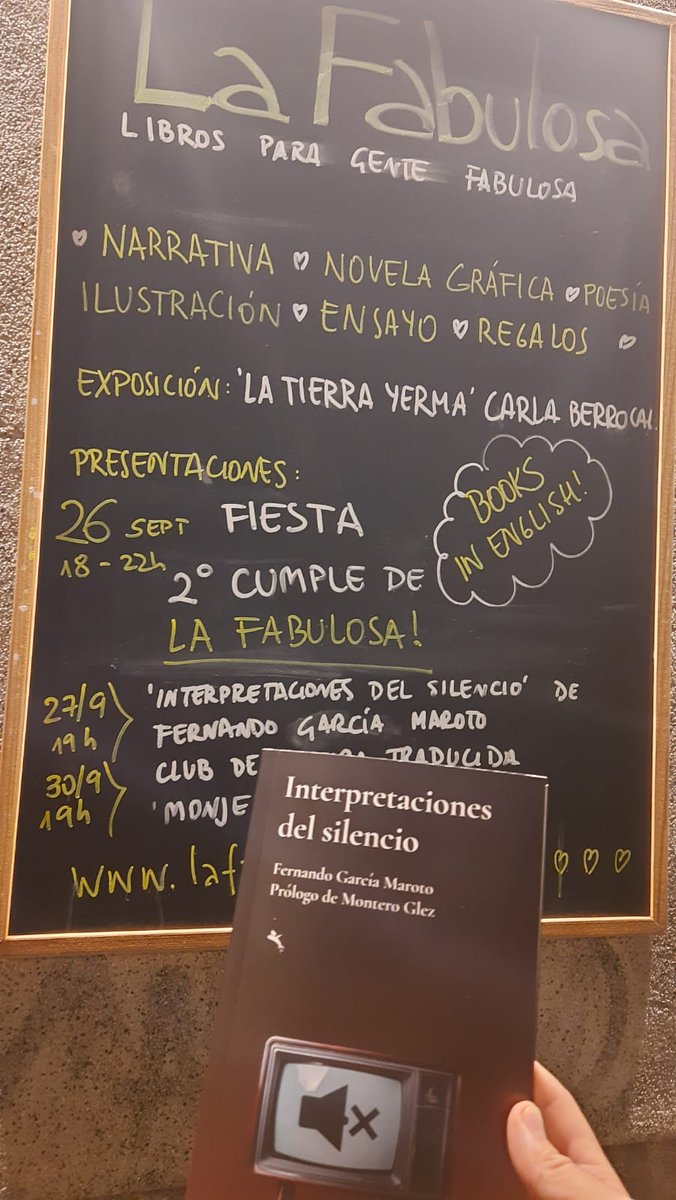 La Fabulosa
LIBROS PARA GENTE FABULOSA
NARRATIVA ♥ NOVELA GRÁFICA ♥ POESÍA
ILUSTRACIÓN ♥ ENSAYO ♥ REGALOS
EXPOSICIÓN: 'LA TIERRA YERMA' CARLA BERROCAL
PRESENTACIONES:
BOOKS
IN ENGLISH!
26 SEPT FIESTA
18-22h
2º CUMPLE DE
LA FABULOSA!
27/9 'INTERPRETACIONES DEL SILENCIO' DE
19h FERNANDO GARCÍA MAROTO
30/9 CLUB DE TRADUCIDA
19h 'MONJE
www.laf
Interpretaciones
del silencio
Fernando García Maroto
Prólogo de Montero Glez